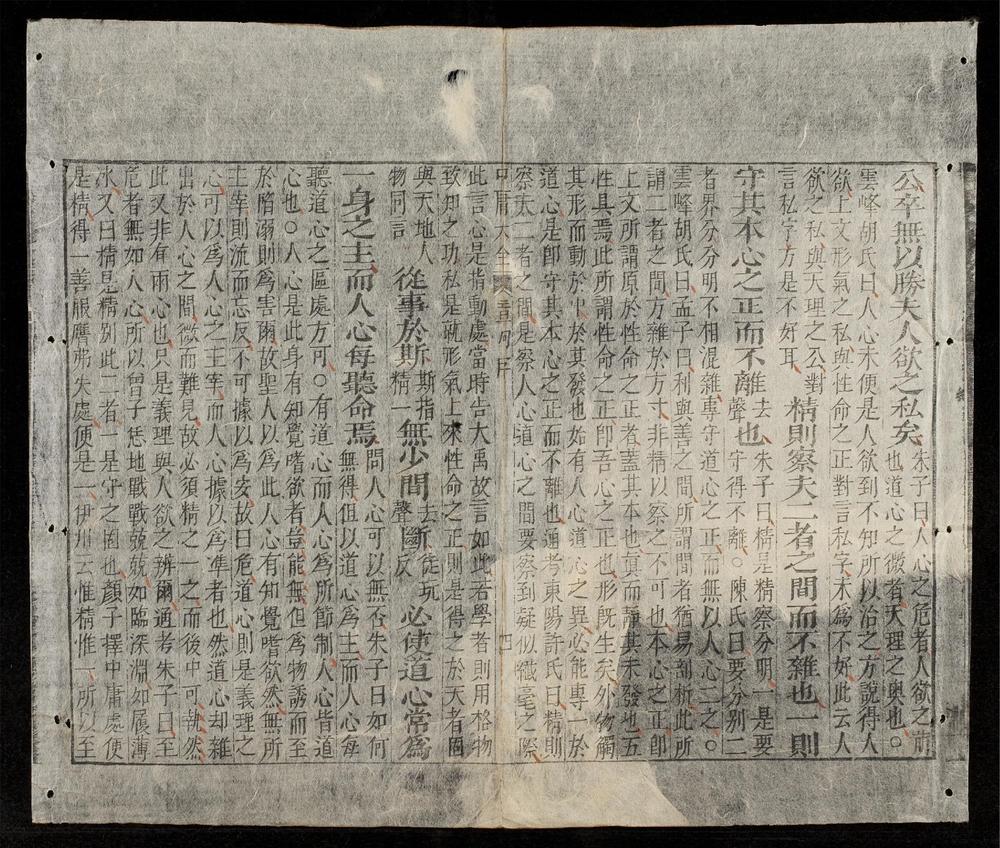 公卒無以勝夫人欲之私矣朱子曰人心之危者人欲之萌
也道心之微者天理之奧也○
雲峰胡氏曰人心未便是人欲到不知所以治之方說得人
欲上文形氣之私與性命之正對言私字未爲不好此云人
欲之私與天理之公對
言私字方是不好耳
精則察夫二者之間而不雜也一則
守其本心之正而不離去聲也朱子曰精是精察分明一是要
守得不離○陳氏曰要分別二
者界分分明不相混雜專守道心之正而無以人心二之○
雲峰胡氏曰孟子曰利與善之間所謂間者猶易剖析此所
謂二者之間方雜於方寸非精以察之不可也本心之正即
上文所謂原於性命之正者蓋其本也真而靜其未發也五
性具焉此所謂性命之正即吾心之正也形既生矣外物觸
其形而動於中於其發也始有人心道心之異必能專一於
道心是即守其本心之正而不離也通考東陽許氏曰精則
察夫二者之間是察人心道心之間要察到疑似纖毫之際
中庸大全 章句序 四
此言心是指動處當時告大禹故言如此若學者則用格物
致知之功私是就形氣上來性命之正則是得之於天者固
與天地人
物同言
從事於斯斯指精一無少間去聲斷徒玩反必使道心常爲
一身之主而人心每聽命焉問人心可以無否朱子曰如何
無得但以道心爲主而人心每
聽道心之區處方可○有道心而人心爲所節制人心皆道
心也○人心是此身有知覺嗜欲者豈能無但爲物誘而至
於陷溺則爲害爾故聖人以爲此人心有知覺嗜欲然無所
主宰則流而忘反不可據以爲安故曰危道心則是義理之
心可以爲人心之主宰而人心據以爲準者也然道心却雜
出於人心之間微而難見故必須精之一之而後中可執然
此又非有兩心也只是義理與人欲之辨爾通考朱子曰至
危者無如人心所以曾子恁地戰戰兢兢如臨深淵如履薄
冰又曰精是精別此二者一是守之固也顏子擇中庸處便
是精得一善服膺弗失處便是一伊川云惟精惟一所以至